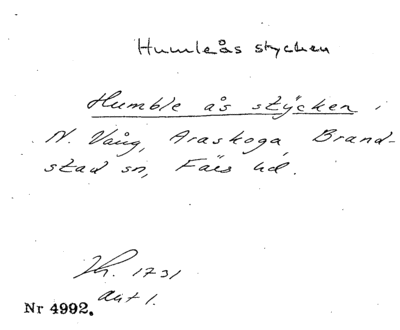 Humleås stycken
Humble ås stÿcken i
N. Vång, Araskoga, Brand-
stad sn, Färs hd.
Lh. 1731
akt 1.
Nr 4992.